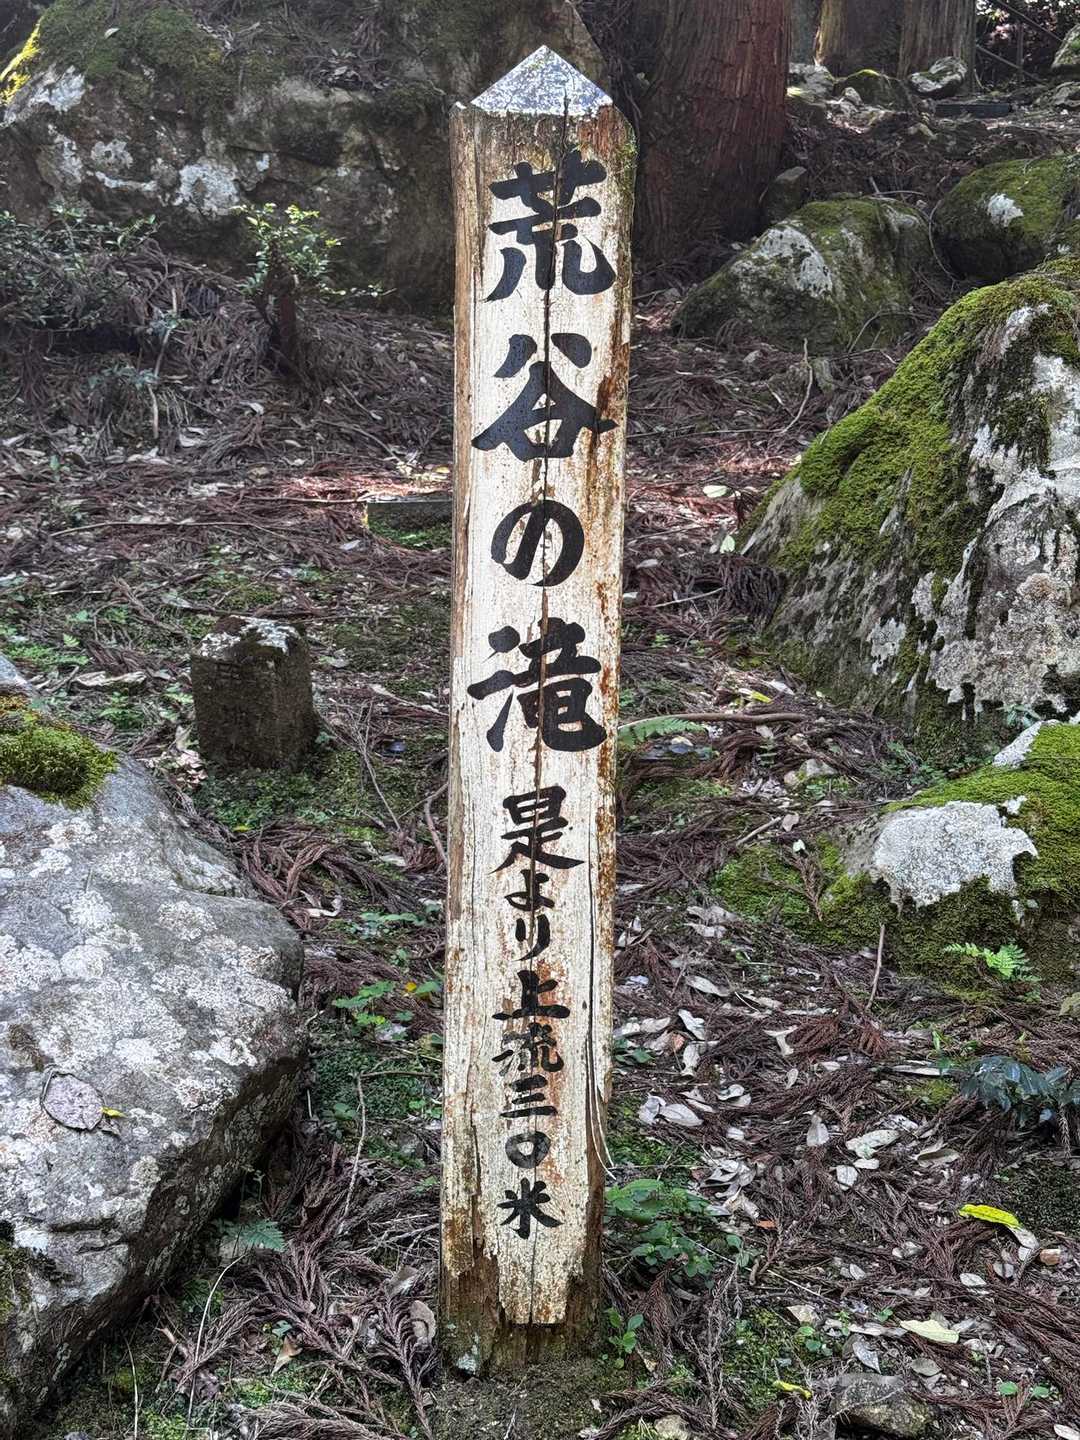 荒谷の滝 是より上流三〇米